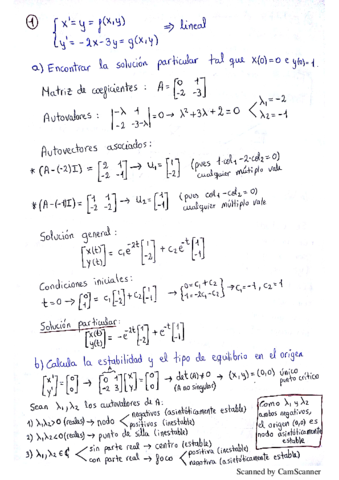 ① { x' = y = f(x,y)
y' = -2x-3y = g(x,y) ⇒ lineal
a) Encontrar la solución particular tal que x(0)=0 e y(0)=1.
Matriz de coeficientes: A = [0 1; -2 -3]
Autovalores: |-λ 1; -2 -3-λ| = 0 → λ²+3λ+2=0 < λ₁=-2
λ₂=-1
Autovectores asociados:
* (A-(-2)I) = [2 1; -2 -1] → u₁ = [1; -2] (pues 1·col₁-2·col₂=0)
cualquier múltiplo vale
* (A-(-1)I) = [1 1; -2 -2] → u₂ = [1; -1] (pues col₁-col₂=0)
cualquier múltiplo vale
Solución general:
[x(t); y(t)] = c₁e^-2t [1; -2] + c₂e^-t [1; -1]
Condiciones iniciales:
t=0 → [0; 1] = c₁[1; -2] + c₂[1; -1] → {0=c₁+c₂; 1=-2c₁-c₂} → c₁=-1, c₂=1
Solución particular:
[x(t); y(t)] = -e^-2t [1; -2] + e^-t [1; -1]
b) Calcula la estabilidad y el tipo de equilibrio en el origen
[x'; y'] = [0; 0] → [0 1; -2 3][x; y] = [0; 0] → det(A)≠0 (A no singular) → (x,y)=(0,0) único
punto crítico
Sean λ₁, λ₂ los autovalores de A:
1) λ₁λ₂>0 (reales) → nodo < negativos (asintóticamente estable)
positivos (inestable)
2) λ₁λ₂<0 (reales) → punto de silla (inestable)
3) λ₁, λ₂ ∈ ℂ < sin parte real → centro (estable)
con parte real → foco < positiva (inestable)
negativa (asintóticamente estable)
Como λ₁ y λ₂
ambos negativos,
el origen (0,0) es
nodo asintóticamente
estable
Scanned by CamScanner